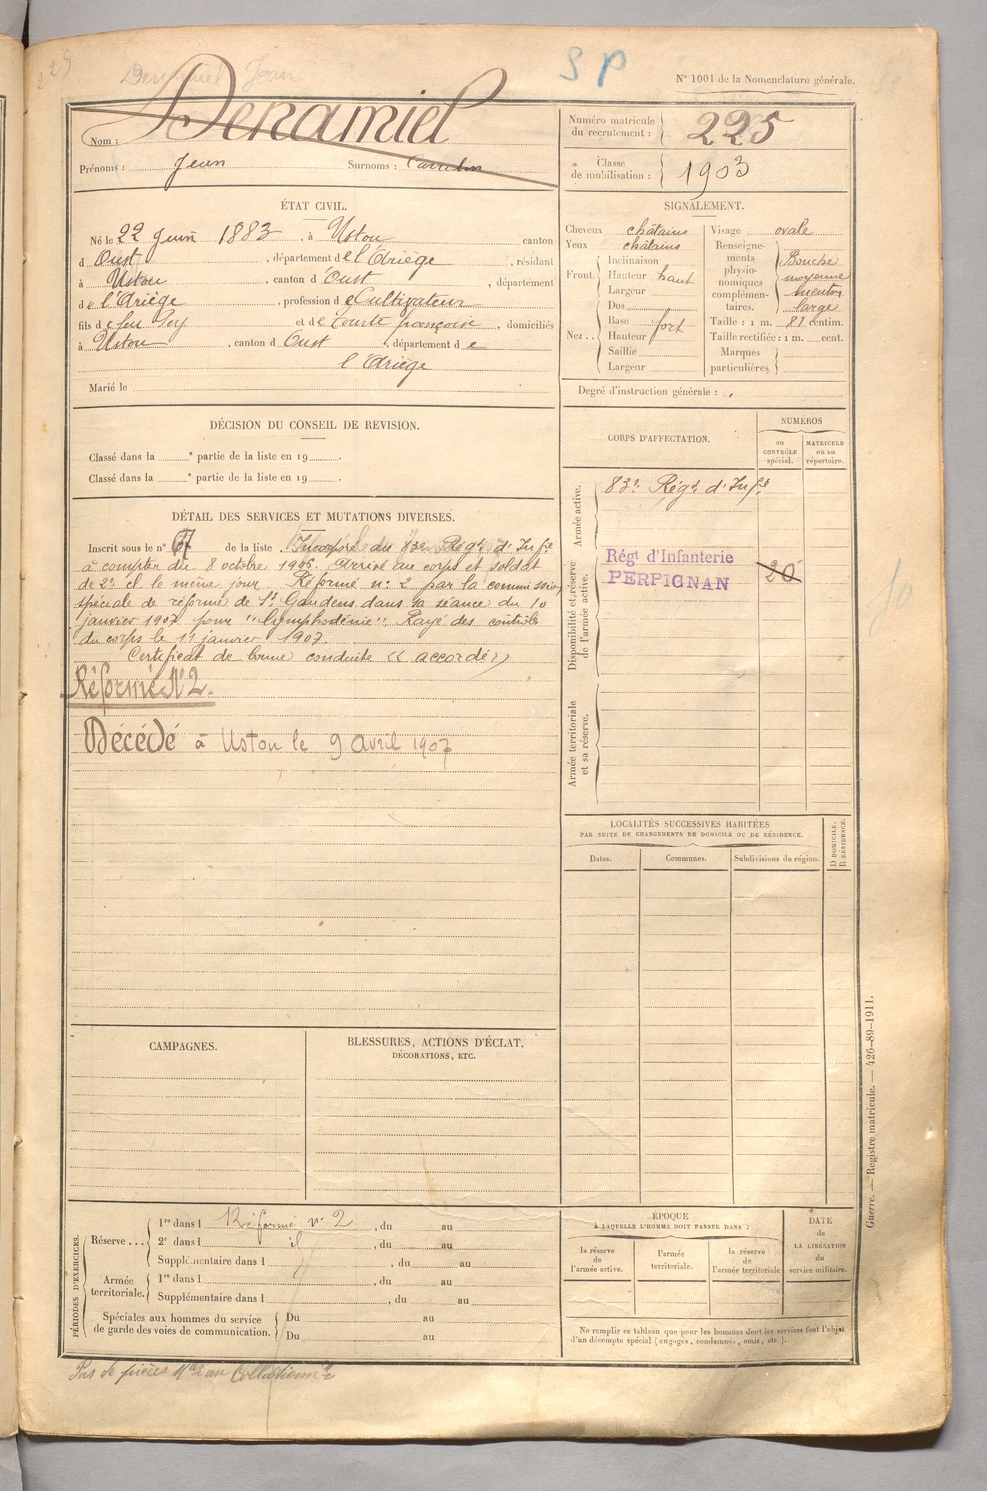 225
Denamiel Jean
S P
N° 1001 de la Nomenclature générale.
Nom : Denamiel
Prénoms : Jean Surnoms :
Numéro matricule du recrutement : 225
Classe de mobilisation : 1903
ÉTAT CIVIL.
Né le 22 Juin 1883, à Ustou canton
d Oust, département de l'Ariège, résidant
à Ustou, canton d'Oust, département
de l'Ariège, profession de Cultivateur
fils de feu Pey et de Courte françoise, domiciliés
à Ustou, canton d Oust, département de
l'Ariège
Marié le
SIGNALEMENT.
Cheveux châtains
Yeux châtains
Front. Inclinaison
Hauteur haut
Largeur
Nez .. Dos
Base fort
Hauteur
Saillie
Largeur
Visage ovale
Renseignements physionomiques complémentaires. Bouche moyenne menton large
Taille : 1 m. 81 centim.
Taille rectifiée : 1 m. cent.
Marques particulières
Degré d'instruction générale :
DÉCISION DU CONSEIL DE REVISION.
Classé dans la e partie de la liste en 19 .
Classé dans la e partie de la liste en 19 .
CORPS D'AFFECTATION.
NUMÉROS
au CONTRÔLE spécial.
MATRICULE ou au répertoire.
Armée active.
83e Régt d'Infie
Disponibilité et réserve de l'armée active.
Régt d'Infanterie
PERPIGNAN
20
Armée territoriale et sa réserve.
DÉTAIL DES SERVICES ET MUTATIONS DIVERSES.
Inscrit sous le n° 67 de la liste . Incorporé au 83e Régt d'Infie
à compter du 8 octobre 1906. Arrivé au corps et soldat
de 2e cl le même jour Réformé n° 2 par la commission
spéciale de réforme de St Gaudens dans sa séance du 10
janvier 1907 pour "Lymphadénie". Rayé des contrôles
du corps le 11 janvier 1907.
Certificat de bonne conduite "accordé"
Réformé N° 2.
Décédé à Ustou le 9 avril 1907
LOCALITÉS SUCCESSIVES HABITÉES
PAR SUITE DE CHANGEMENTS DE DOMICILE OU DE RÉSIDENCE.
Dates.
Communes.
Subdivisions de région.
D DOMICILE.
R RÉSIDENCE.
CAMPAGNES.
BLESSURES, ACTIONS D'ÉCLAT,
DÉCORATIONS, ETC.
PÉRIODES D'EXERCICES.
Réserve ... 1re dans l Réformé n° 2, du au
2e dans l , du au
Supplémentaire dans l , du au
Armée territoriale. 1re dans l , du au
Supplémentaire dans l , du au
Spéciales aux hommes du service de garde des voies de communication. Du au
Du au
ÉPOQUE
À LAQUELLE L'HOMME DOIT PASSER DANS :
la réserve de l'armée active.
l'armée territoriale.
la réserve de l'armée territoriale
DATE de LA LIBÉRATION du service militaire.
Ne remplir ce tableau que pour les hommes dont les services font l'objet
d'un décompte spécial (engagés, condamnés, omis, etc.).
Guerre. — Registre matricule. — 426-89-1911.
Pas de pièces